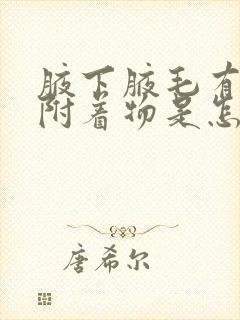 腋下腋毛有
附着物是怎
唐希尔